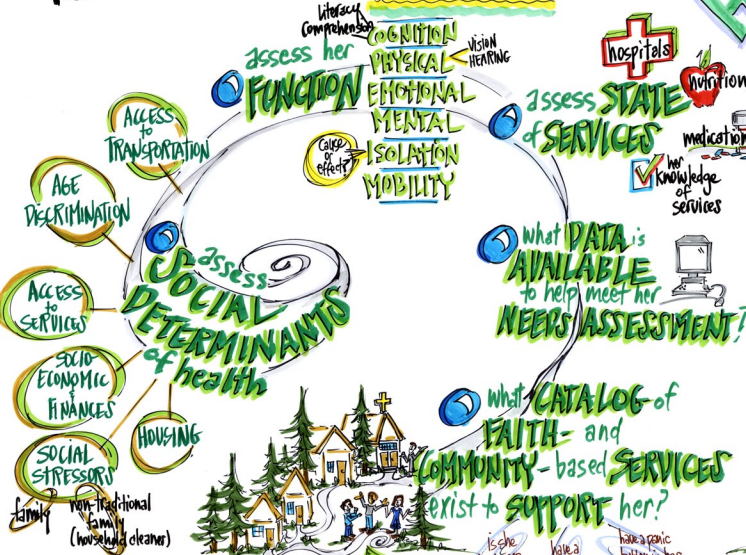 Literacy
Comprehension
COGNITION
PHYSICAL
VISION
HEARING
EMOTIONAL
MENTAL
Cause
or
effect?
ISOLATION
MOBILITY
assess her
FUNCTION
hospitals
nutrition
assess STATE
of SERVICES
medication
her
knowledge
of
services
ACCESS
to
TRANSPORTATION
AGE
DISCRIMINATION
ACCESS
to
SERVICES
SOCIO-
ECONOMIC
&
FINANCES
SOCIAL
STRESSORS
family
non-traditional
family
(household cleaner)
HOUSING
assess
SOCIAL
DETERMINANTS
of health
what DATA is
AVAILABLE
to help meet her
NEEDS ASSESSMENT?
what CATALOG of
FAITH- and
COMMUNITY-based SERVICES
exist to SUPPORT her?
is she
have a
have a panic